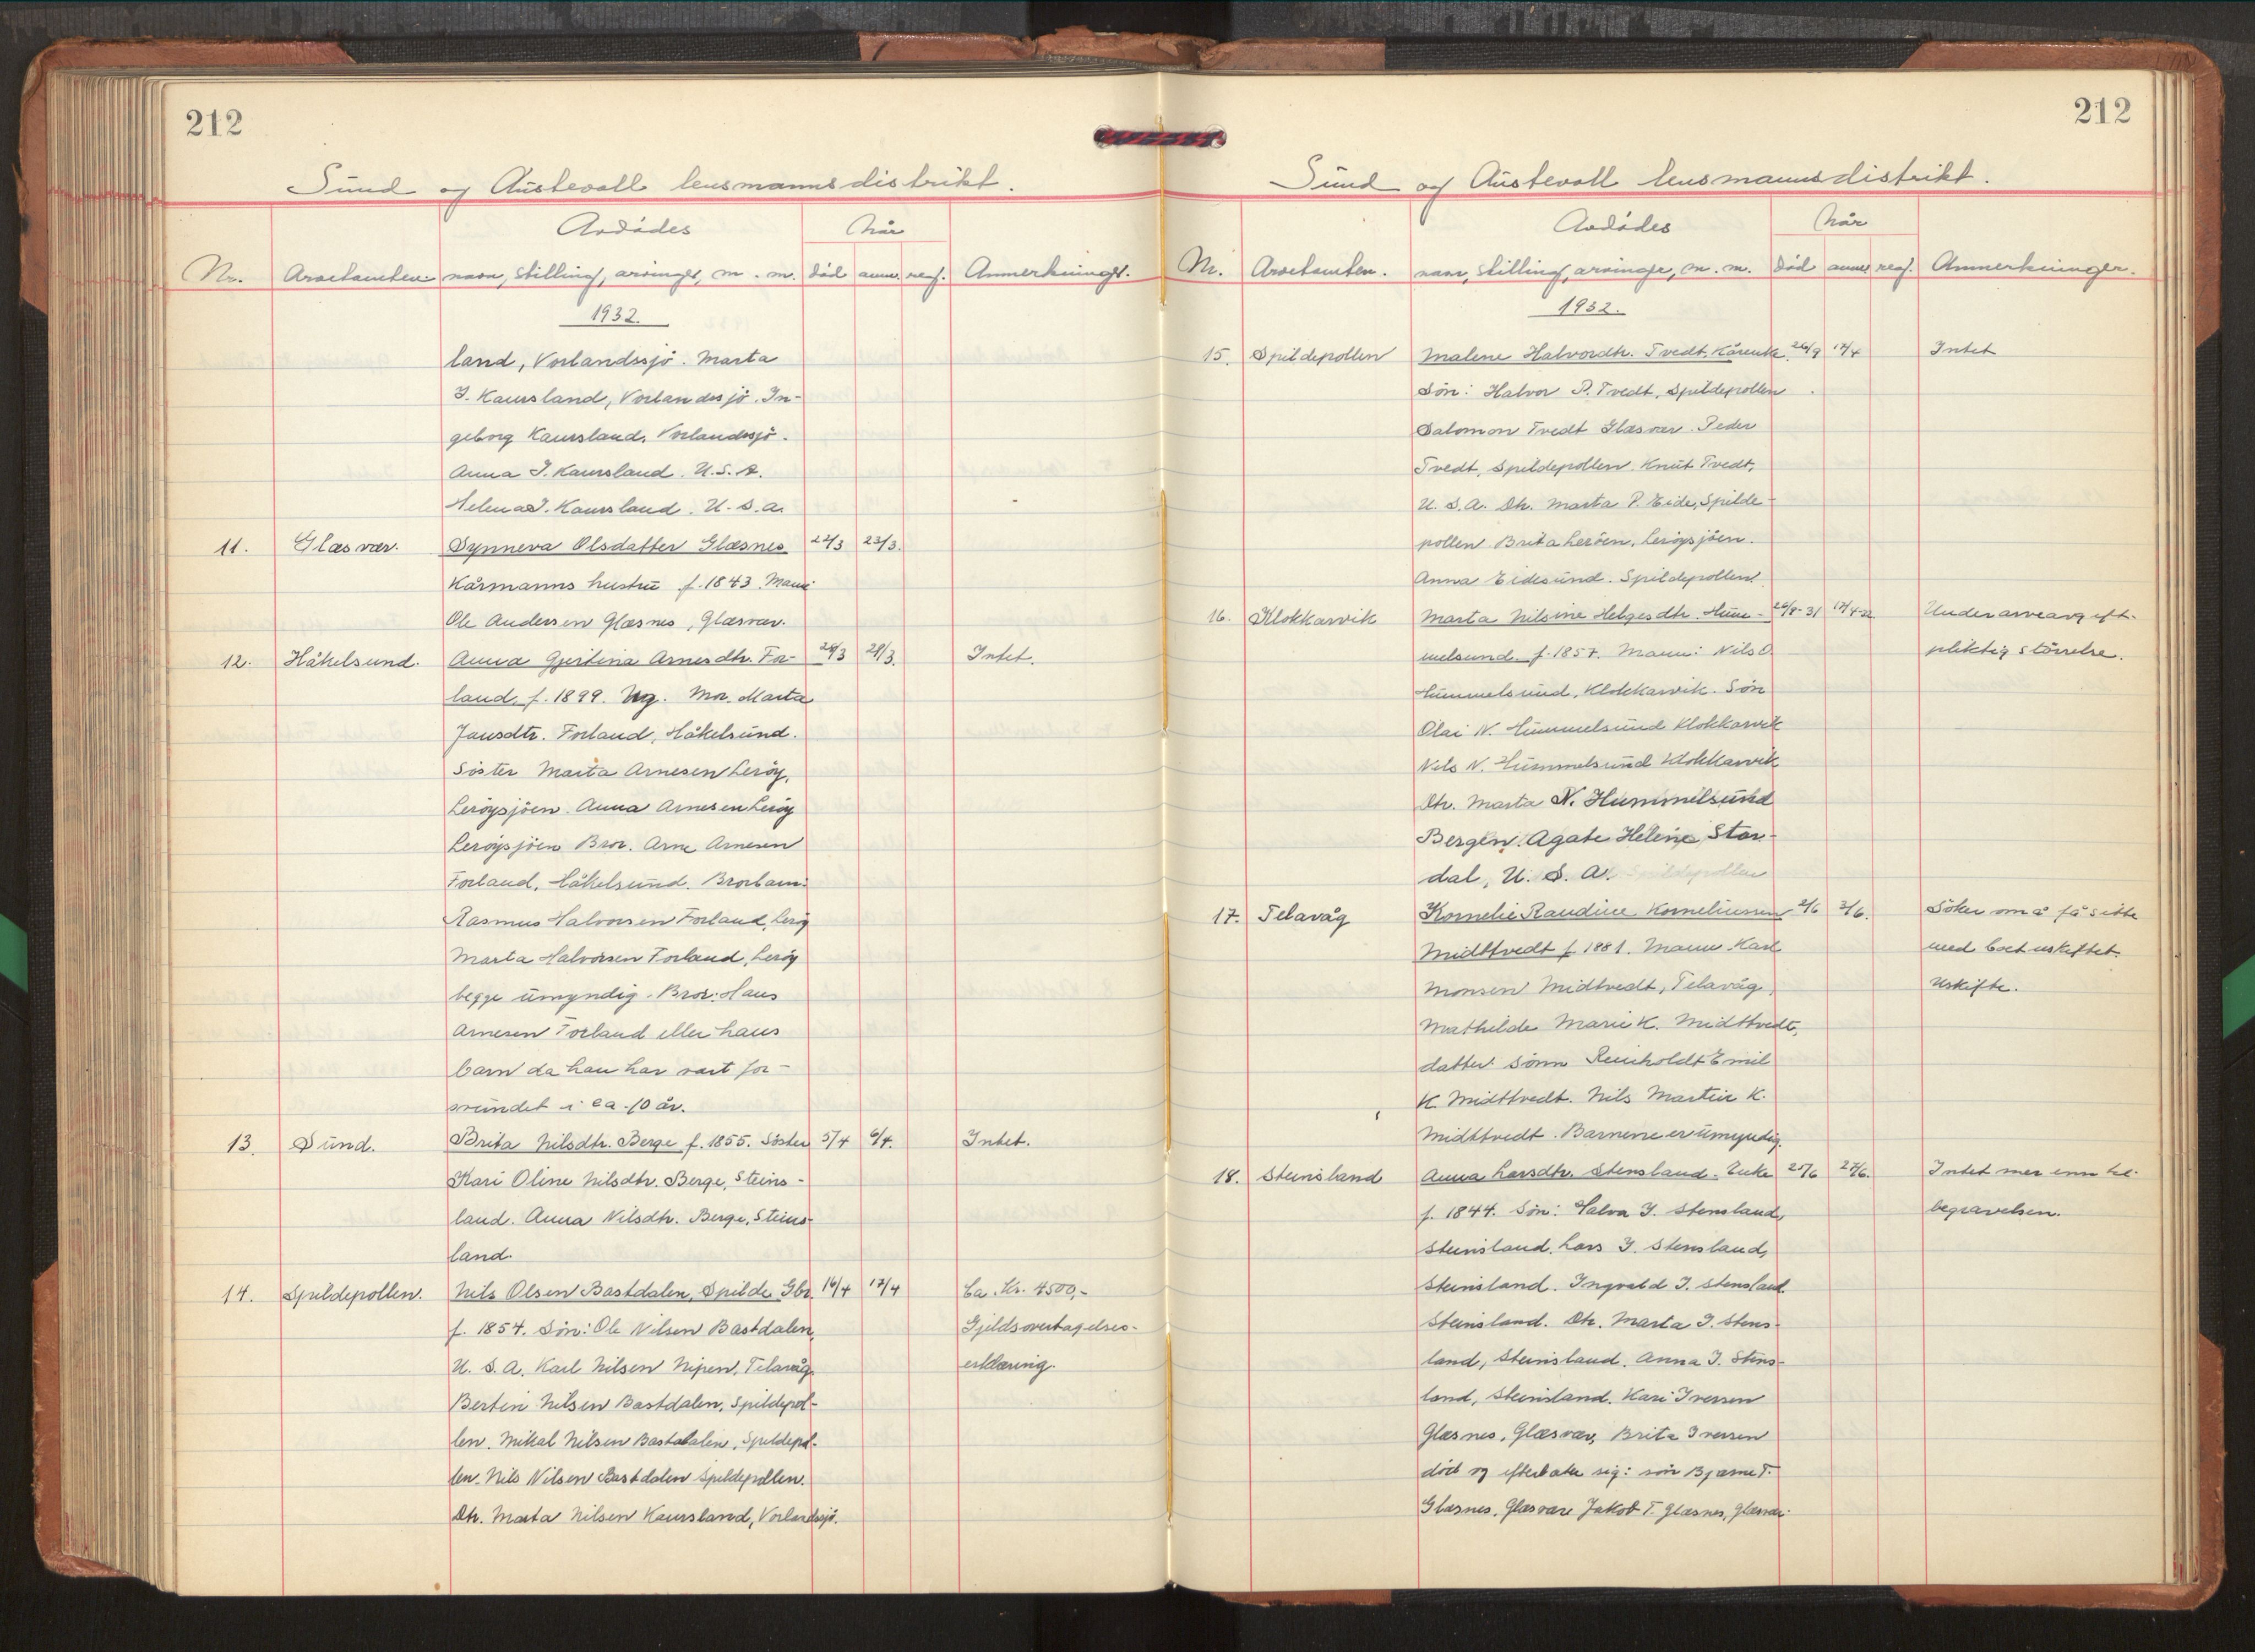 212
Sund og Austevoll lensmannsdistrikt.
Avdødes
Når
Nr. Arvetomten. navn, stilling, arvinger, m. m. død anm. reg. Anmerkninger.
1932.
land, Vorlandssjö. Marta
I. Kausland, Vorlandssjö. In-
geborg Kausland, Vorlandssjö.
Anna I. Kausland. U.S.A.
Helena I. Kausland. U.S.A.
11. Glæsvær. Synneva Olsdatter Glæsnes 22/3 23/3.
Kårmanns hustru f. 1843. Mann
Ole Andersen Glæsnes, Glæsvær.
12. Håkelsund. Anna Gjertina Arnesdtr. For- 24/3 29/3. Intet.
land, f. 1899. Ug. Mor. Marta
Jansdtr. Forland, Håkelsund.
Söster Marta Arnesen Leröy,
Leröysjöen. Anna Arnesen Leröy
Leröysjöen Bror. Arne Arnesen
Forland, Håkelsund. Brorbarn:
Rasmus Halvorsen Forland, Leröy
Marta Halvorsen Forland, Leröy
begge umyndig. Bror: Hans
Arnesen Forland eller hans
barn da han har vært for-
svundet i ca. 10 år.
13. Sund. Brita Nilsdtr. Berge f. 1855. Söster 5/4 6/4. Intet.
Kari Oline Nilsdtr. Berge, Steins-
land. Anna Nilsdtr. Berge, Steins-
land.
14. Spildepollen. Nils Olsen Bastdalen, Spilde Gbr. 16/4 17/4 Ca. Kr. 4500,-
f. 1854. Sön: Ole Nilsen Bastdalen, Gjeldsovertagelses-
U. S. A. Karl Nilsen Nipen, Telavåg. erklæring.
Bertin Nilsen Bastdalen, Spildepol-
len. Mikal Nilsen Bastdalen, Spildepol-
len. Nils Nilsen Bastdalen Spildepollen.
Dtr. Marta Nilsen Kausland, Vorlandssjö.
212
Sund og Austevoll lensmannsdistrikt.
Avdødes
Når
Nr. Arvetomten. navn, stilling, arvinger, m. m. død anm. reg. Anmerkninger.
1932.
15. Spildepollen Malene Halvordtr. Tvedt, Kårenke 26/9 17/4 Intet
Sön: Halvor P. Tvedt, Spildepollen
Salomon Tvedt Glæsvær. Peder
Tvedt, Spildepollen. Knut Tvedt,
U. S. A. Dtr. Marta P. Eide, Spilde-
pollen Brita Leröen, Leröysjöen.
Anna Eidesund. Spildepollen.
16. Klokkarvik Marta Nilsine Helgesdtr. Hum- 26/8-31 17/4-32 Under arveavgift-
melsund f. 1857. Mann: Nils O. pliktig störrelse.
Hummelsund, Klokkarvik. Sön
Olai N. Hummelsund Klokkarvik
Nils N. Hummelsund Klokkarvik
Dtr. Marta N. Hummelsund
Bergen. Agate Helene Stor-
dal, U. S. A.
17. Telavåg Kornelie Raudine Korneliussen 2/6 3/6. Söker om å få sitte
Midttvedt f. 1881. Mann Karl med boet uskiftet.
Monsen Midtvedt, Telavåg, Uskifte.
Mathilde Marie K. Midttvedt,
datter. Sönn Reinholdt Emil
K. Midttvedt. Nils Martin K.
Midttvedt. Barnene er umyndig.
18. Steinsland Anna Larsdtr. Stensland. Enke 25/6 27/6. Intet mer enn til
f. 1844. Sön: Salva I. Stensland, begravelsen.
Steinsland. Lars I. Stensland,
Steinsland. Ingvald I. Stensland.
Steinsland. Dtr. Marta I. Stens-
land, Steinsland. Anna I. Stens-
land, Steinsland. Kari Iversen
Glæsnes, Glæsvær, Brita Iversen
död og efterlater sig: sön Bjarne T.
Glæsnes, Glæsvær Jakob T. Glæsnes, Glæsvær.